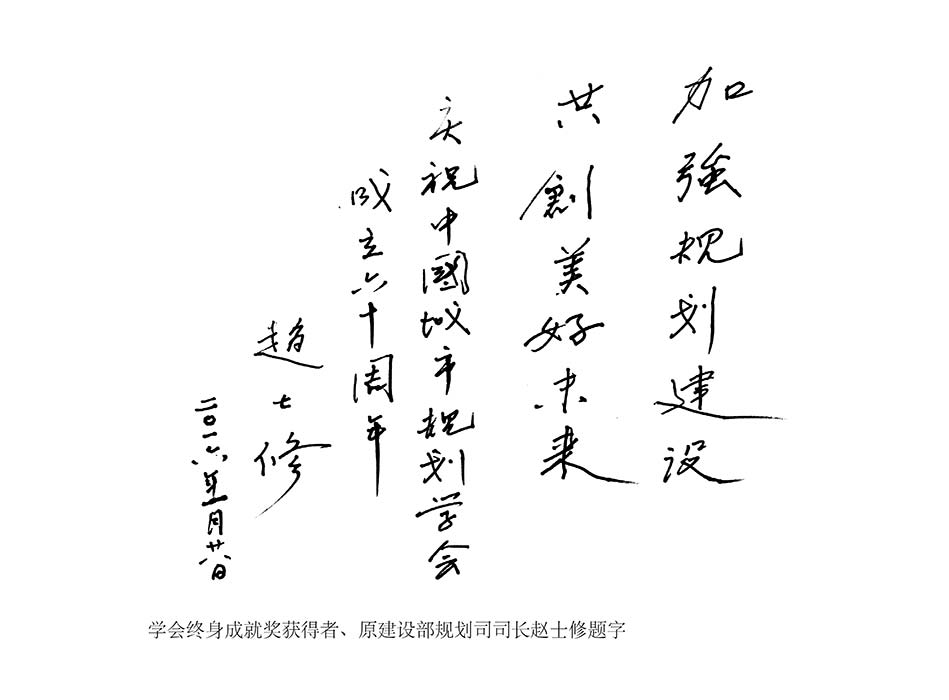 加強规划建设
共創美好未来
庆祝中國城市规划学会
成立六十周年
趙士修
二〇一六年月廿八日
学会终身成就奖获得者、原建设部规划司司长赵士修题字